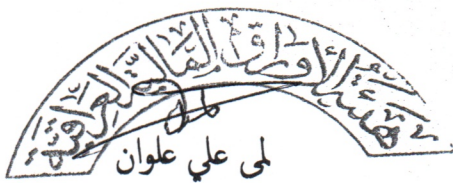 هيئة الأوراق المالية العراقية
لمى علي علوان